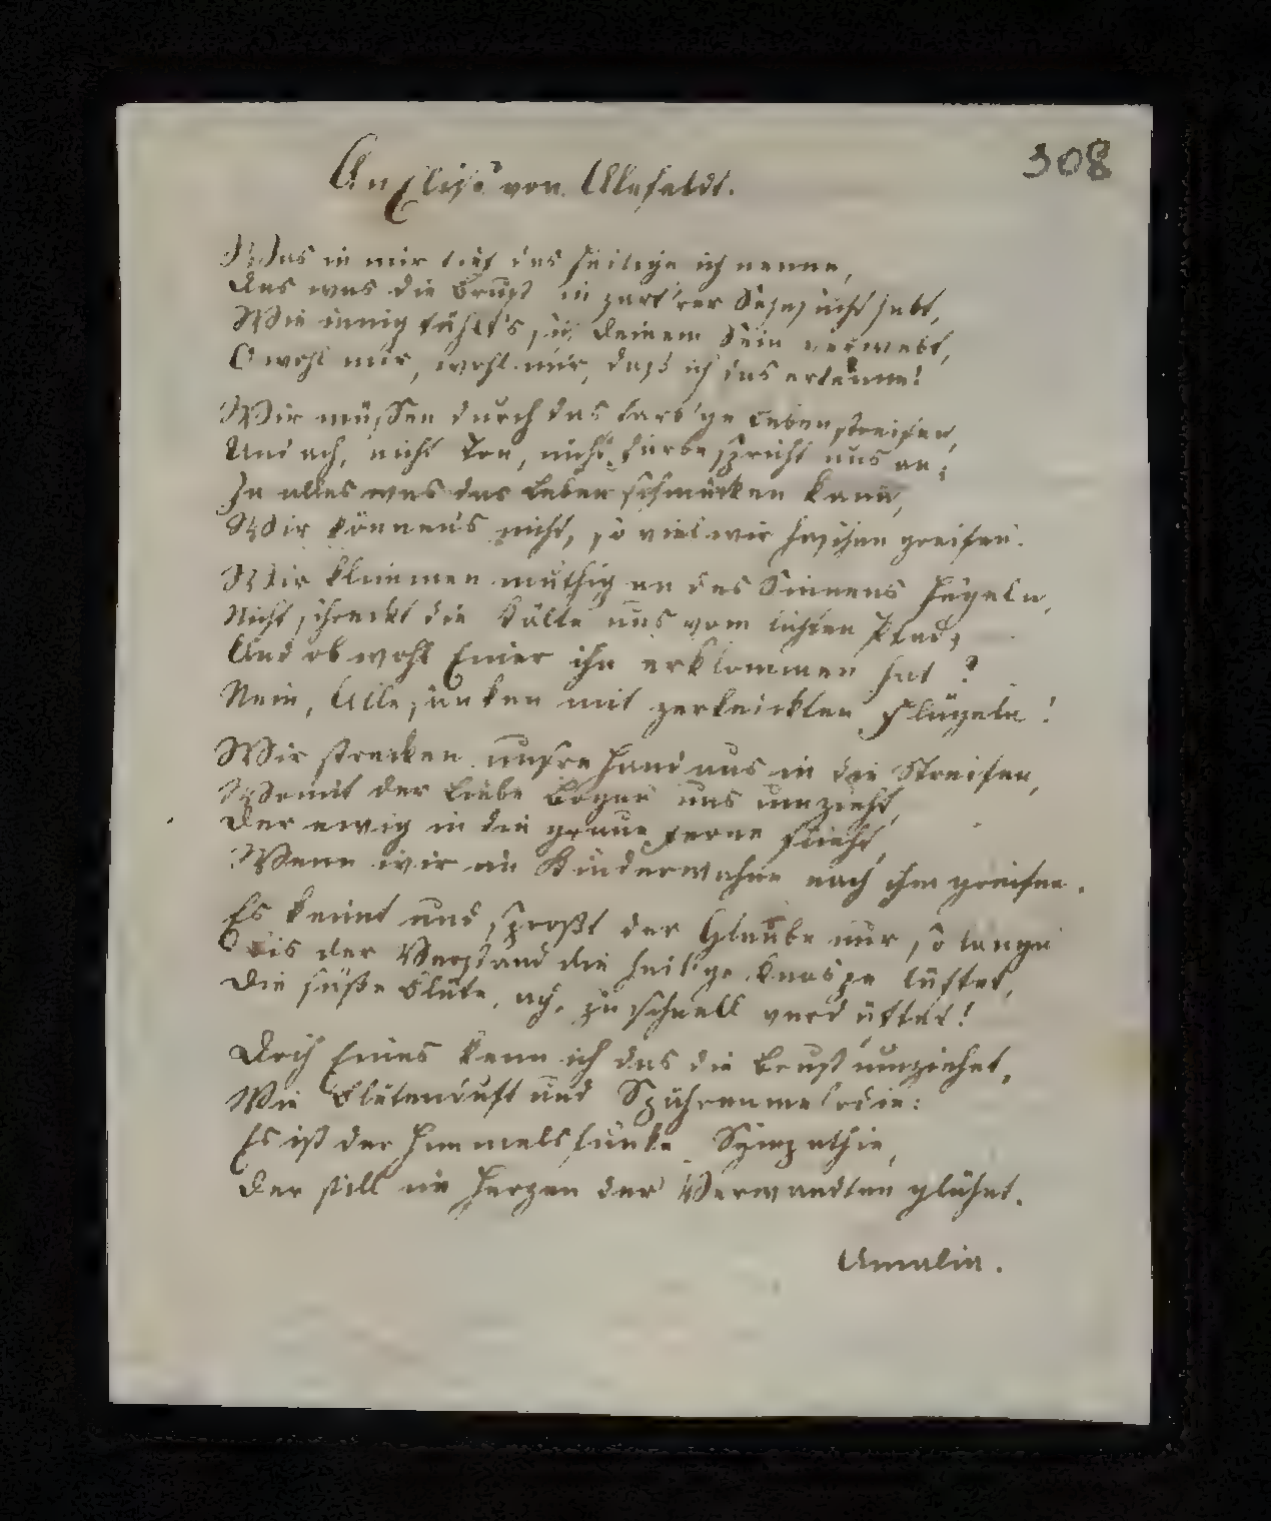 308
An Elise von Alefeldt.
Was in mir tief das heilige ich nenne,
Das was die Brust in zart'rer Sehnsucht hebt,
Wie innig fühlt's sich Deinem Sein verwebt,
O wohl mir, wohl mir, daß ich das erkenne!
Wir müssen durch das farb'ge Leben streifen,
Und ach, nicht Ton, nicht Farbe spricht uns an;
Ja alles was das Leben schmücken kann,
Wir können's nicht, so viel wir haschen greifen.
Wir klimmen muthig an des Sinnens Hügeln,
Nicht schreckt die Kälte uns vom lichten Pfad;
Und ob wohl Einer ihn erklommen hat?
Nein, Alle sanken mit zerknickten Flügeln!
Wir strecken unsre Hand aus in die Streifen,
Womit der Liebe Bogen uns umzieht,
Der ewig in die graue Ferne flieht,
Wenn wir im Kinderwahne nach ihm greifen.
Es keimt und sproßt der Glaube nur so lange
Bis der Verstand die heil'ge Knospe lüftet,
Die süße Blüte, ach, zu schnell verdüftet!
Doch Eines kenn ich das die Brust umziehet,
Wie Blütenduft und Sphärenmelodie:
Es ist der Himmelsfunke Sympathie,
Der still im Herzen der Verwandten glühet.
Amalia.